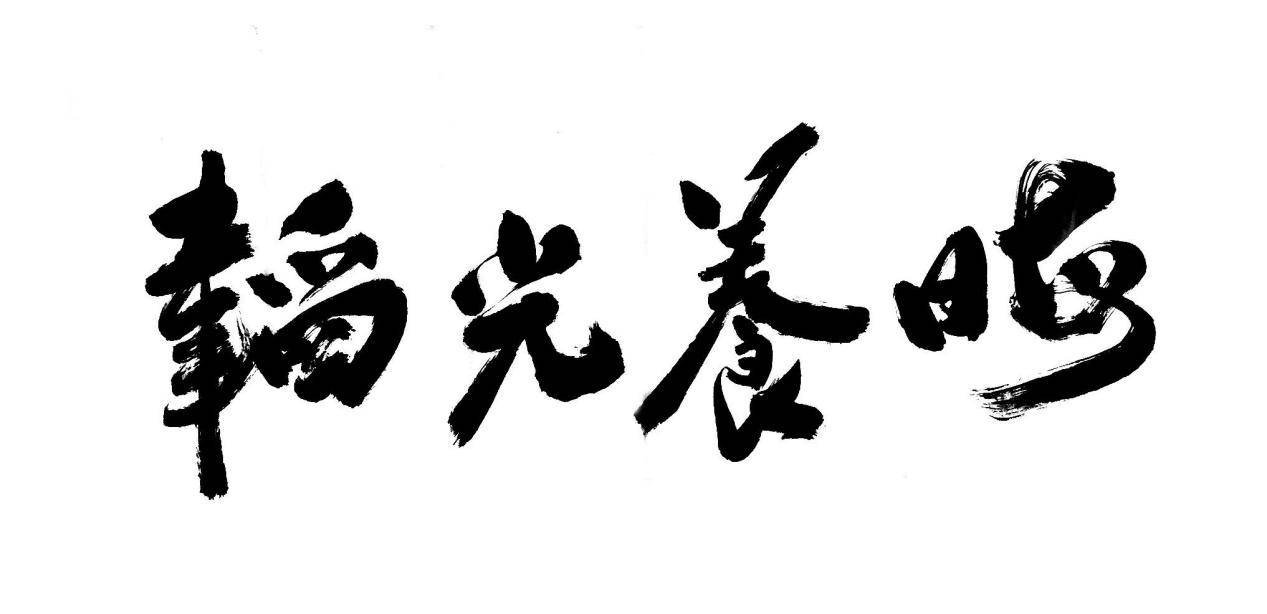 韜光養晦